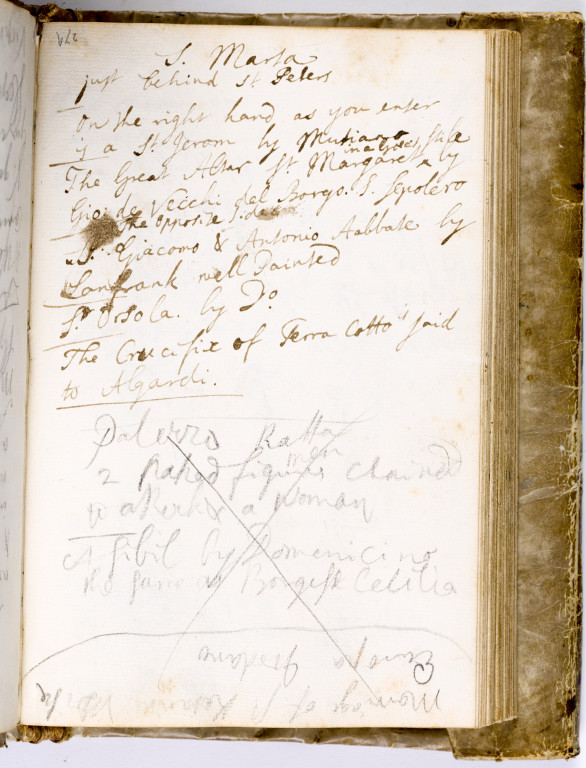 27A
S. Marta
just behind St Peters
on the right hand as you enter
is a St Jerom by Mutiano
in a great stile
The Great Altar St. Margaret by
Gio: de Vecchi del Borgo. S. Sepolcro
The opposite side
St. Giacomo & Antonio Aabbate by
Lanfrank well Painted
St. Orsola. by Do
The Crucifix of Terra Cotto said
to Algardi.
Palezzo Ratta
men
2 Naked figures chained
to a Rock & a Woman
A Sibil by Domenicino
the same as Borgese Cecilia
Europa
Marriage of St